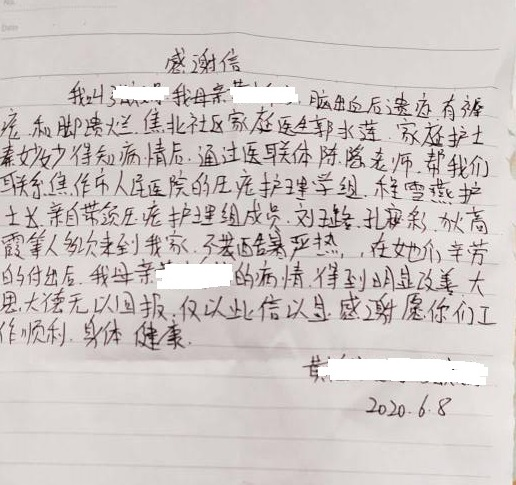 感谢信
我叫 我母亲 脑出血后遗症.有褥
疮.和脚溃烂.焦北社区家庭医生郭水莲.家庭护士
秦妙妙得知病情后.通过医联体陈 老师.帮我们
联系.焦作市人民医院的压疮护理学组.程雪燕护
士长.亲自带领压疮护理组成员.刘 .孔 彩.狄高
霞等人多次来到我家.不畏酷暑严热,在她们辛劳
的付出后.我母亲 的病情.得到明显改善大
恩大德无以回报.仅以此信以显感谢愿你们工
作顺利.身体健康.
黄
2020.6.8